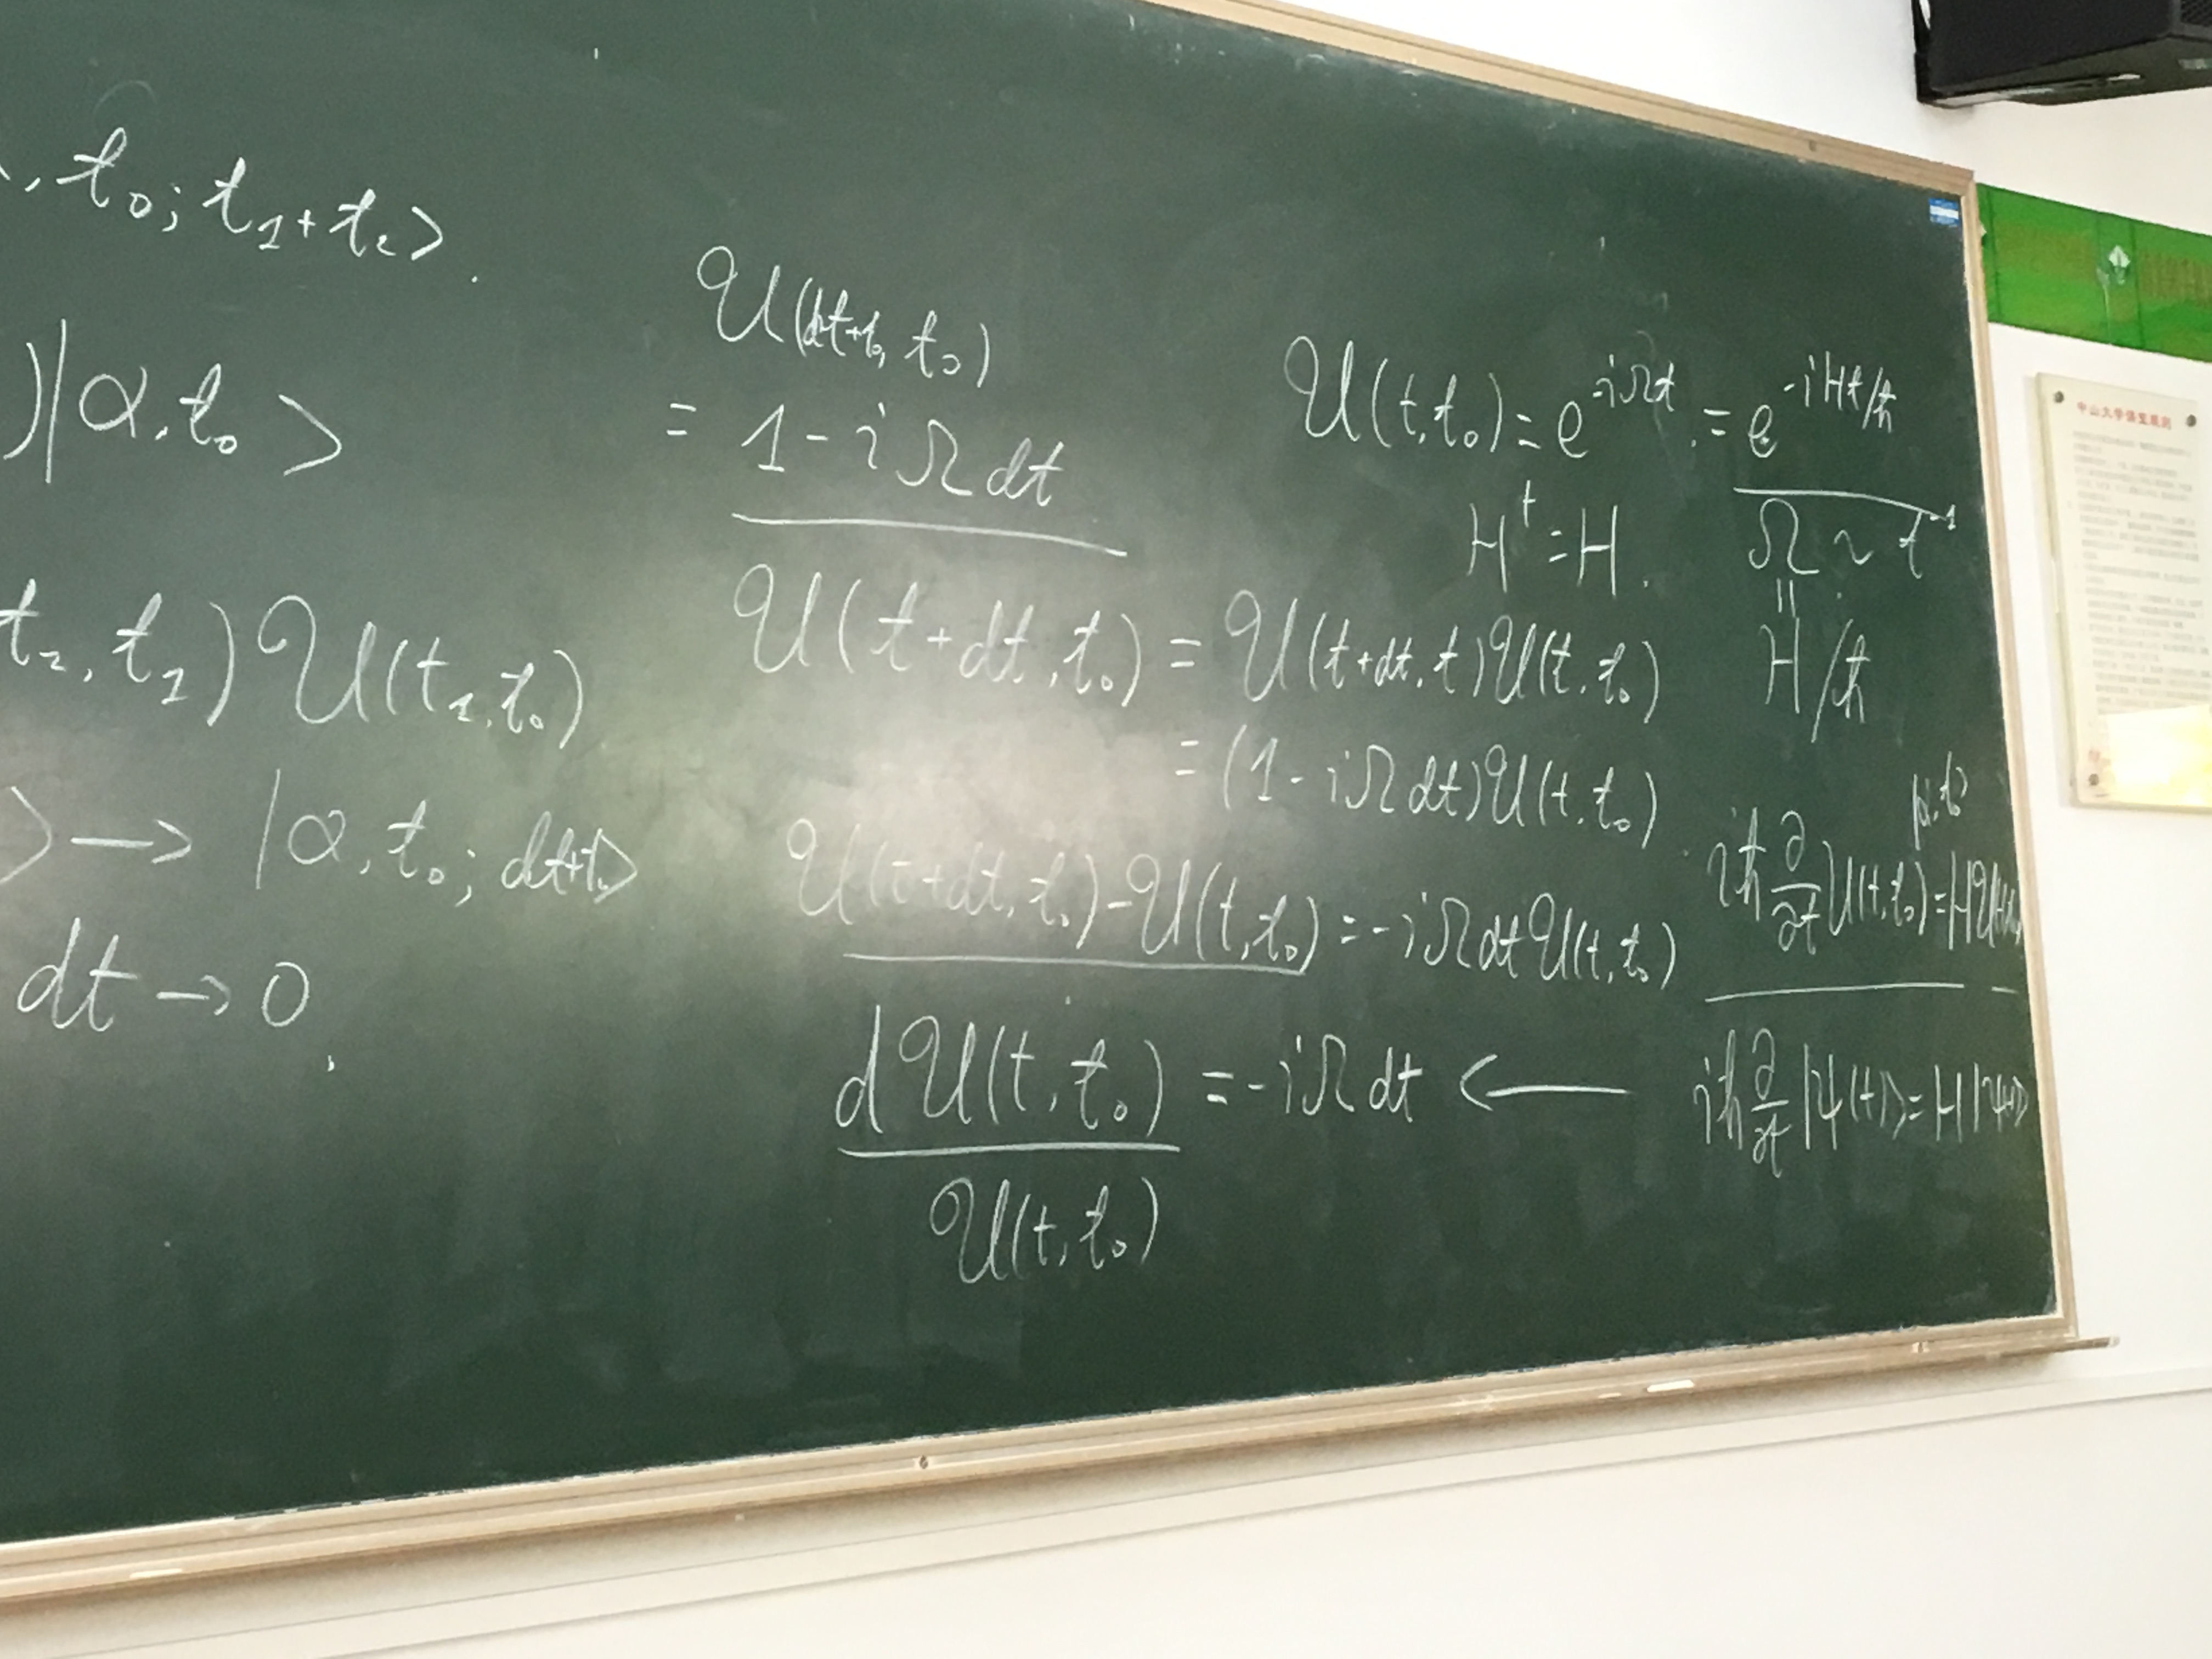 , t₀; t₁+t₂>.
)|α, t₀ >
t₂, t₁) U(t₁, t₀)
> → |α, t₀; dt+t₀>
dt → 0,
U(dt+t₀, t₀)
= 1 - iΩdt
U(t+dt, t₀) = U(t+dt, t)U(t, t₀)
= (1 - iΩdt)U(t, t₀)
U(t+dt, t₀) - U(t, t₀) = -iΩdt U(t, t₀)
dU(t, t₀) / U(t, t₀) = -iΩdt ←
U(t, t₀) = e^{-iΩt} = e^{-iHt/ħ}
H† = H.
Ω ~ t⁻¹
=
H/ħ
|α, t₀>
iħ ∂/∂t U(t, t₀) = H U(t, t₀)
iħ ∂/∂t |ψ(t)> = H |ψ(t)>
中山大学课室规则